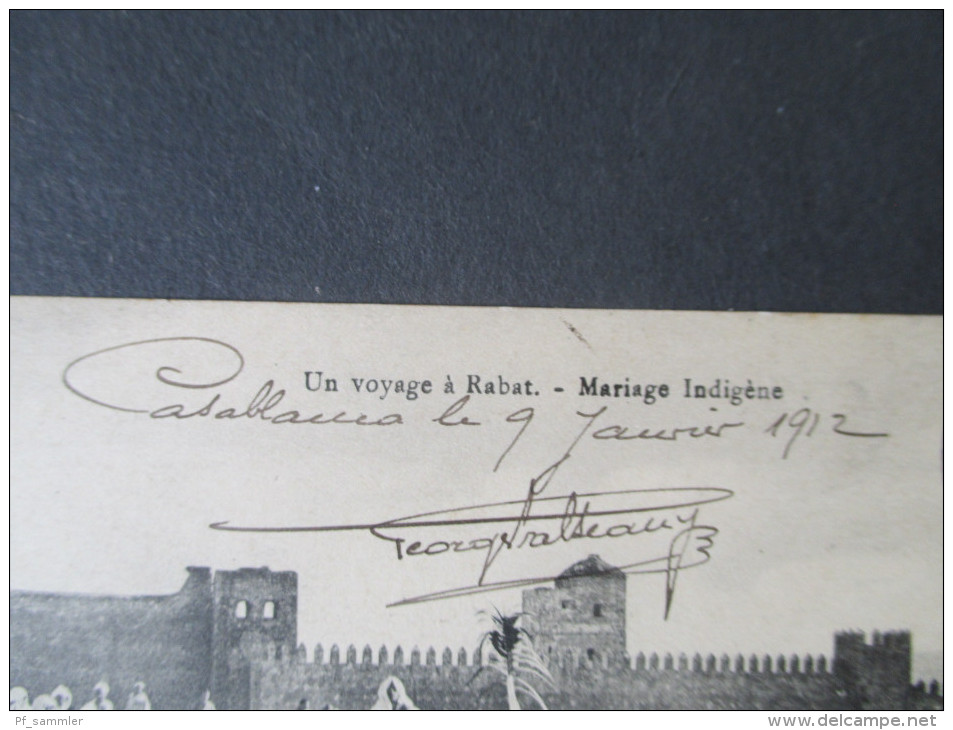 Un voyage à Rabat. - Mariage Indigène
Casablanca le 9 Janvier 1912
Georges
Pf_sammler
www.delcampe.net